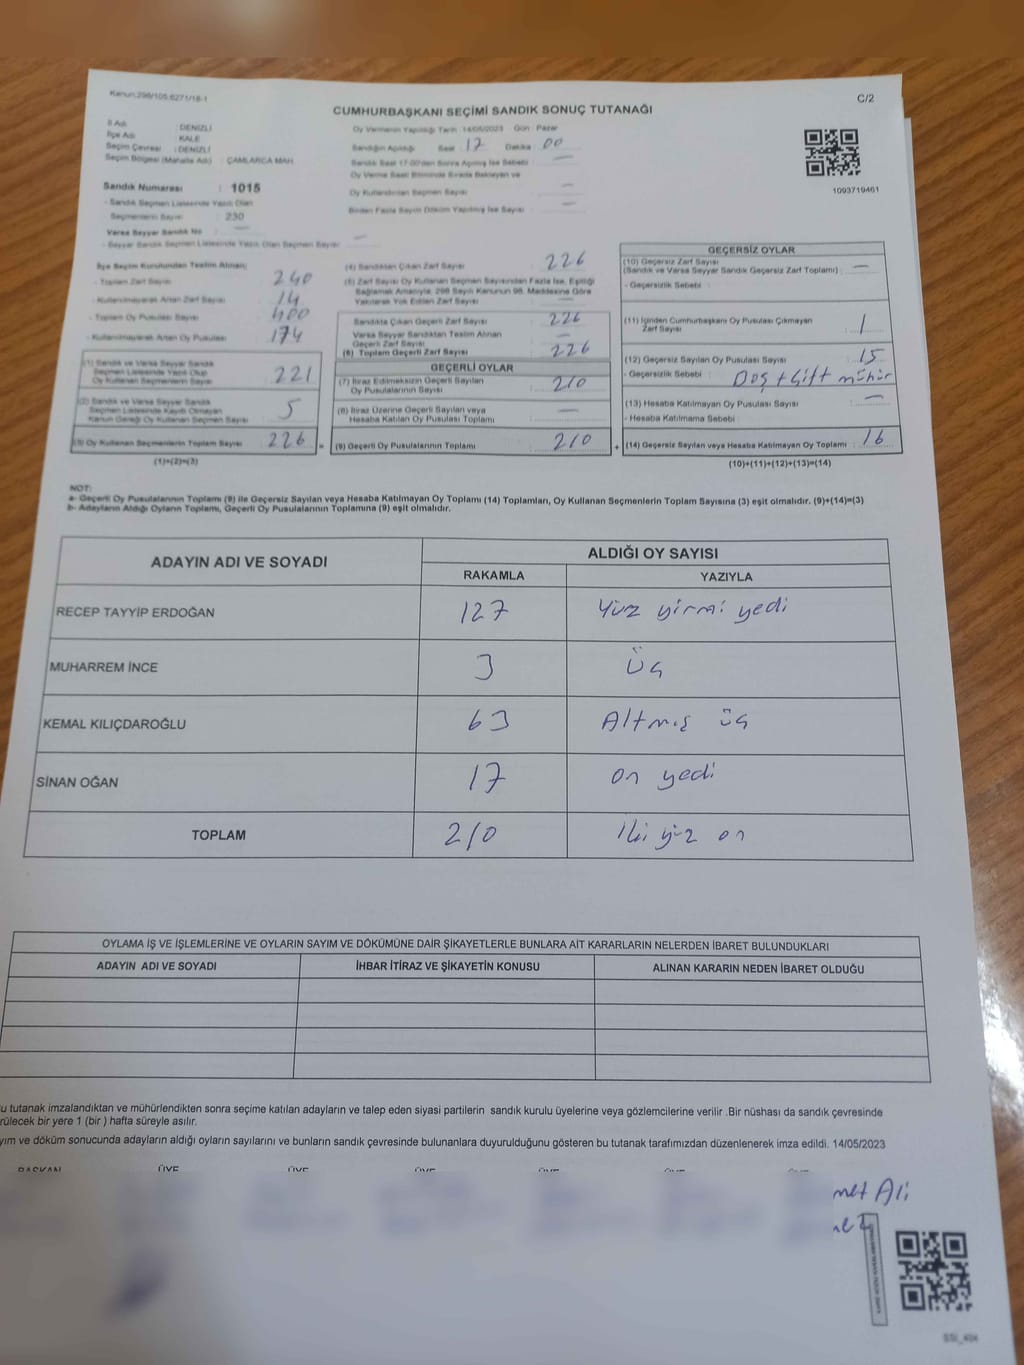 Kanun:298/105;6271/18-1
C/2
CUMHURBAŞKANI SEÇİMİ SANDIK SONUÇ TUTANAĞI
İl Adı : DENİZLİ
İlçe Adı : KALE
Seçim Çevresi : DENİZLİ
Seçim Bölgesi (Mahalle Adı) : ÇAMLARCA MAH.
Sandık Numarası : 1015
- Sandık Seçmen Listesinde Yazılı Olan
Seçmenlerin Sayısı : 230
Varsa Seyyar Sandık No : —
- Seyyar Sandık Seçmen Listesinde Yazılı Olan Seçmen Sayısı : —
Oy Vermenin Yapıldığı Tarih : 14/05/2023 Gün : Pazar
Sandığın Açıldığı Saat : 17 Dakika : 00
Sandık Saat 17:00'den Sonra Açılmış İse Sebebi : —
Oy Verme Saati Bitiminde Sırada Bekleyen ve
Oy Kullandırılan Seçmen Sayısı : —
Birden Fazla Sayım Döküm Yapılmış İse Sayısı : —
1093719461
İlçe Seçim Kurulundan Teslim Alınan;
- Toplam Zarf Sayısı : 240
- Kullanılmayarak Artan Zarf Sayısı : 14
- Toplam Oy Pusulası Sayısı : 400
- Kullanılmayarak Artan Oy Pusulası : 174
(1) Sandık ve Varsa Seyyar Sandık
Seçmen Listesinde Yazılı Olup
Oy Kullanan Seçmenlerin Sayısı : 221
(2) Sandık ve Varsa Seyyar Sandık
Seçmen Listesinde Kayıtlı Olmayan
Kanun Gereği Oy Kullanan Seçmen Sayısı : 5
(3) Oy Kullanan Seçmenlerin Toplam Sayısı : 226 =
(1)+(2)=(3)
(4) Sandıktan Çıkan Zarf Sayısı : 226
(5) Zarf Sayısı Oy Kullanan Seçmen Sayısından Fazla İse, Eşitliği
Sağlamak Amacıyla, 298 Sayılı Kanunun 98. Maddesine Göre
Yakılarak Yok Edilen Zarf Sayısı : —
Sandıkta Çıkan Geçerli Zarf Sayısı : 226
Varsa Seyyar Sandıktan Teslim Alınan
Geçerli Zarf Sayısı : —
(6) Toplam Geçerli Zarf Sayısı : 226
GEÇERLİ OYLAR
(7) İtiraz Edilmeksizin Geçerli Sayılan
Oy Pusulalarının Sayısı : 210
(8) İtiraz Üzerine Geçerli Sayılan veya
Hesaba Katılan Oy Pusulası Toplamı : —
(9) Geçerli Oy Pusulalarının Toplamı : 210 +
GEÇERSİZ OYLAR
(10) Geçersiz Zarf Sayısı
(Sandık ve Varsa Seyyar Sandık Geçersiz Zarf Toplamı) : —
- Geçersizlik Sebebi :
(11) İçinden Cumhurbaşkanı Oy Pusulası Çıkmayan
Zarf Sayısı : 1
(12) Geçersiz Sayılan Oy Pusulası Sayısı : 15
- Geçersizlik Sebebi : Boş + Çift mühür
(13) Hesaba Katılmayan Oy Pusulası Sayısı : —
- Hesaba Katılmama Sebebi :
(14) Geçersiz Sayılan veya Hesaba Katılmayan Oy Toplamı : 16
(10)+(11)+(12)+(13)=(14)
NOT:
a- Geçerli Oy Pusulalarının Toplamı (9) ile Geçersiz Sayılan veya Hesaba Katılmayan Oy Toplamı (14) Toplamları, Oy Kullanan Seçmenlerin Toplam Sayısına (3) eşit olmalıdır. (9)+(14)=(3)
b- Adayların Aldığı Oyların Toplamı, Geçerli Oy Pusulalarının Toplamına (9) eşit olmalıdır.
ADAYIN ADI VE SOYADI
ALDIĞI OY SAYISI
RAKAMLA YAZIYLA
RECEP TAYYİP ERDOĞAN 127 Yüz yirmi yedi
MUHARREM İNCE 3 Üç
KEMAL KILIÇDAROĞLU 63 Altmış üç
SİNAN OĞAN 17 on yedi
TOPLAM 210 İki yüz on
OYLAMA İŞ VE İŞLEMLERİNE VE OYLARIN SAYIM VE DÖKÜMÜNE DAİR ŞİKAYETLERLE BUNLARA AİT KARARLARIN NELERDEN İBARET BULUNDUKLARI
ADAYIN ADI VE SOYADI İHBAR İTİRAZ VE ŞİKAYETİN KONUSU ALINAN KARARIN NEDEN İBARET OLDUĞU
u tutanak imzalandıktan ve mühürlendikten sonra seçime katılan adayların ve talep eden siyasi partilerin sandık kurulu üyelerine veya gözlemcilerine verilir .Bir nüshası da sandık çevresinde
rülecek bir yere 1 (bir ) hafta süreyle asılır.
yım ve döküm sonucunda adayların aldığı oyların sayılarını ve bunların sandık çevresinde bulunanlara duyurulduğunu gösteren bu tutanak tarafımızdan düzenlenerek imza edildi. 14/05/2023
BAŞKAN ÜYE ÜYE ÜYE ÜYE ÜYE ÜYE
met Ali